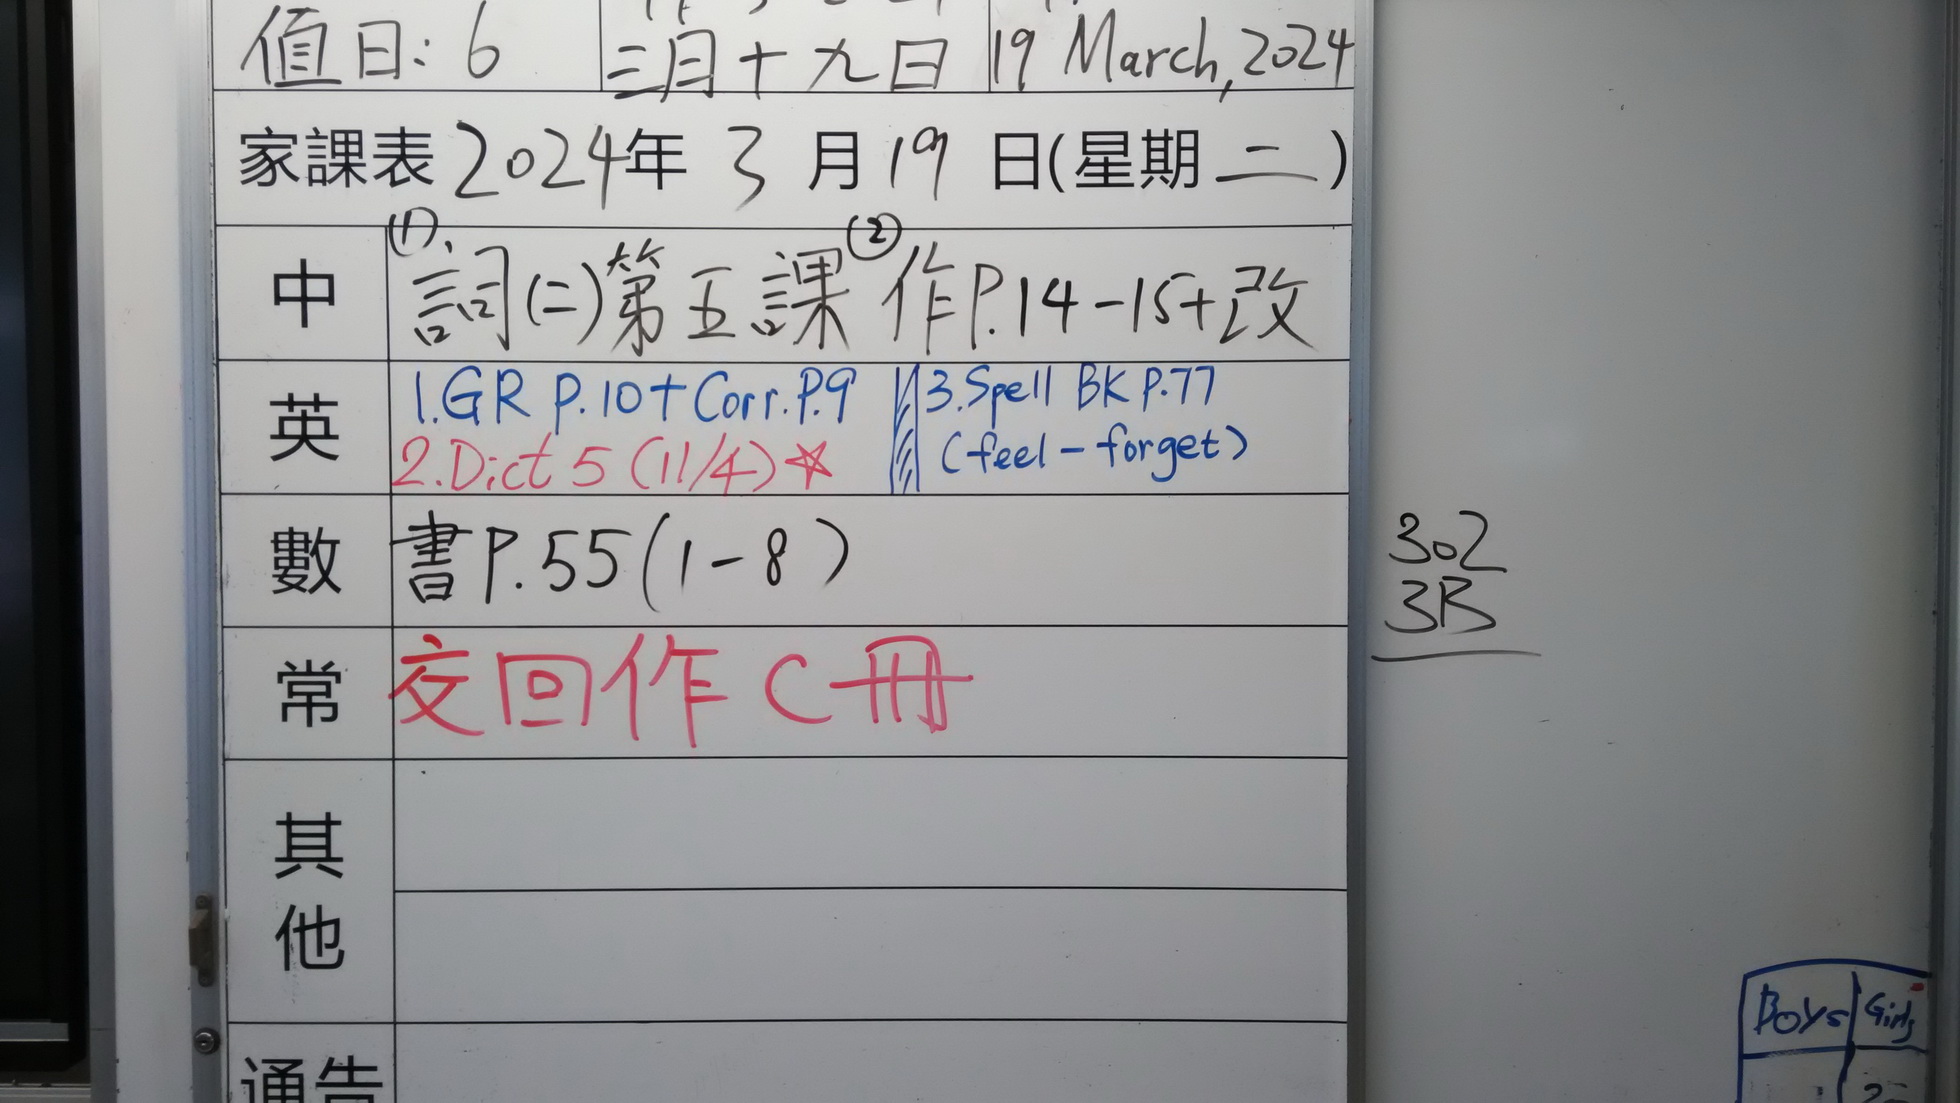 值日: 6
三月十九日
19 March, 2024
家課表 2024年 3 月 19 日(星期 二 )
中
(1). 詞(二)第五課 (2) 作P.14-15+改
英
1.GR P.10+Corr.P.9
2.Dict 5 (11/4) ☆
3.Spell BK P.77
(feel - forget)
數
書P.55(1-8)
常
交回作C冊
其他
通告
302
3B
Boys Girls